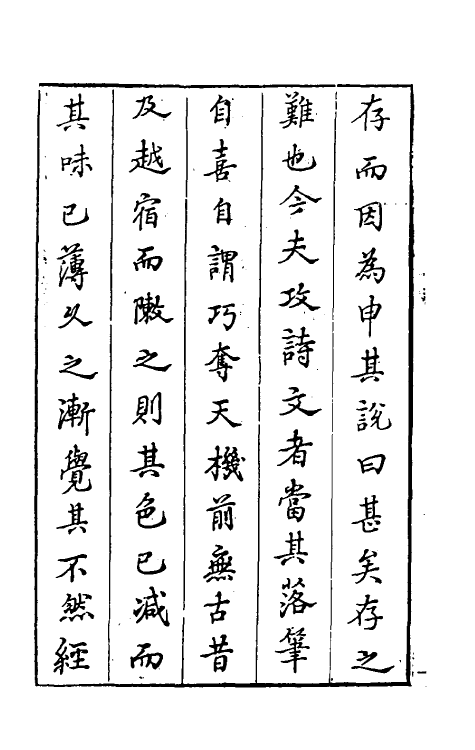 存而因為申其說曰甚矣存之
難也今夫攻詩文者當其落筆
自喜自謂巧奪天機前無古昔
及越宿而㬠之則其色已减而
其味已薄久之漸覺其不然經